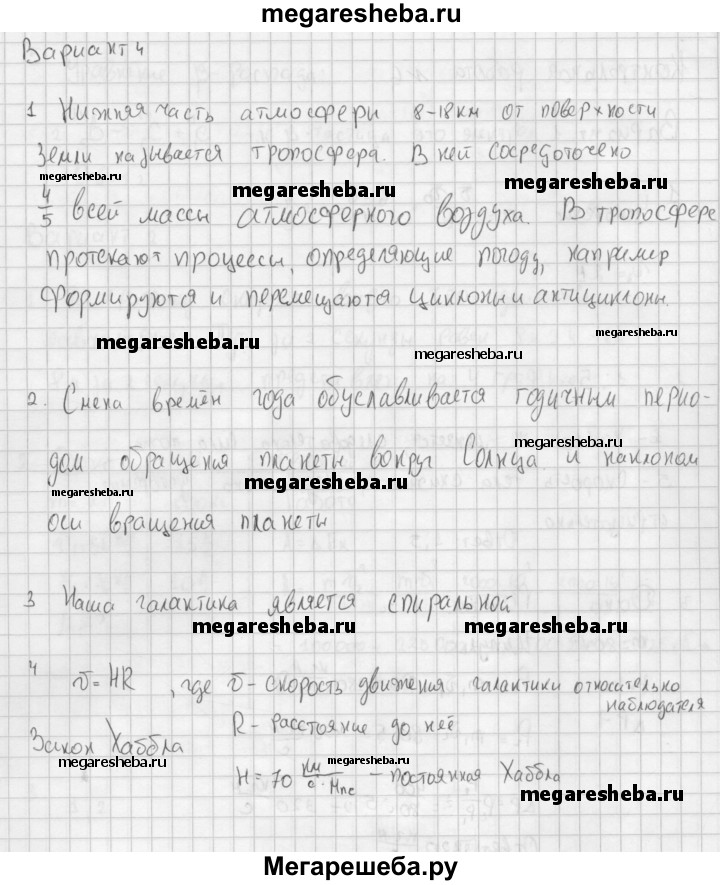 megaresheba.ru
Вариант 4
1 Нижняя часть атмосфери 8-18км от поверхности
Земли называется тропосфера. В ней сосредоточено
megaresheba.ru
megaresheba.ru
megaresheba.ru
4/5 всей массы атмосферного воздуха. В тропосфере
протекают процессы, определяющие погоду, например
формируются и перемещаются циклоны и антициклоны.
megaresheba.ru
megaresheba.ru
megaresheba.ru
2. Смена времён года обуславливается годичным перио-
megaresheba.ru
дом обращения планеты вокруг Солнца и наклоном
megaresheba.ru
megaresheba.ru
оси вращения планеты
3 Наша галактика является спиральной
megaresheba.ru
megaresheba.ru
4 v = HR, где v - скорость движения галактики относительно
наблюдателя
R - расстояние до неё
Закон Хаббла
megaresheba.ru
megaresheba.ru
H = 70 км/с·Мпс - постоянная Хаббла
megaresheba.ru
megaresheba.ru
Мегарешеба.ру